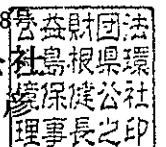 8号
公益財団法
人島根県環
境保健公社
理事長之印
社
彦